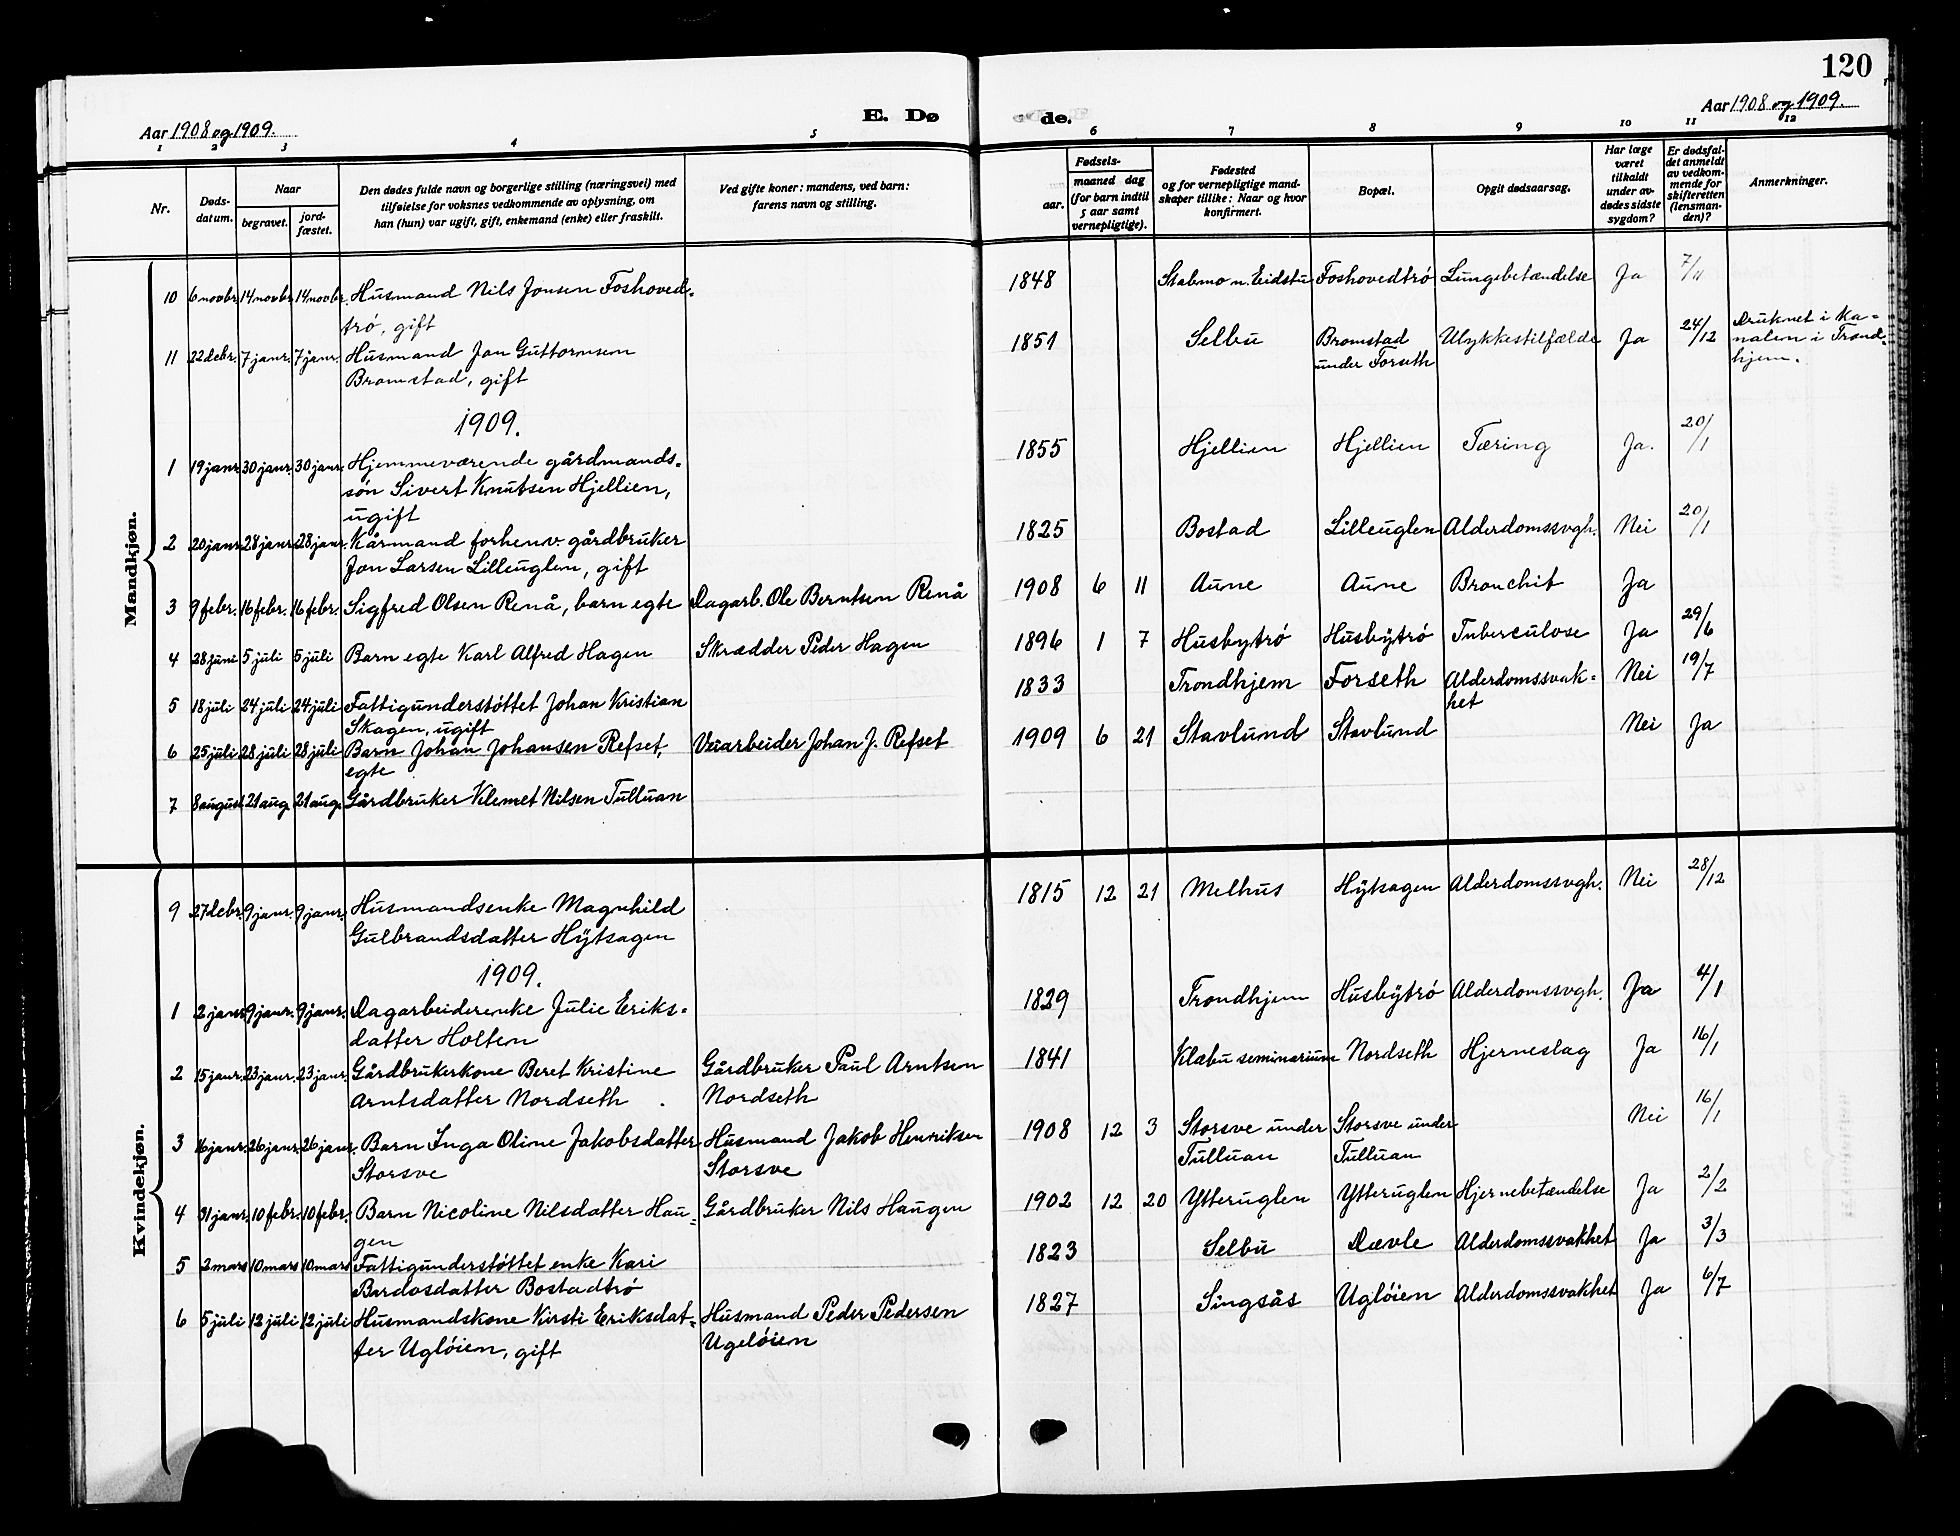 120
Aar 1908 og 1909.
E. Dø
de.
Aar 1908 og 1909.
1 2 3 4 5 6 7 8 9 10 11 12
Nr.
Døds-
datum.
Naar
begravet.
jord-
fæstet.
Den dødes fulde navn og borgerlige stilling (næringsvei) med
tilføielse for voksnes vedkommende av oplysning, om
han (hun) var ugift, gift, enkemand (enke) eller fraskilt.
Ved gifte koner: mandens, ved barn:
farens navn og stilling.
aar.
Fødsels-
maaned dag
(for barn indtil
5 aar samt
vernepligtige).
Fødested
og for vernepligtige mand-
skaper tillike: Naar og hvor
konfirmert.
Bopæl.
Opgit dødsaarsag.
Har læge
været
tilkaldt
under av-
dødes sidste
sygdom?
Er dødsfal-
det anmeldt
av vedkom-
mende for
skifteretten
(lensman-
den)?
Anmerkninger.
Mandkjøn.
10 6 novbr. 14 novbr. 14 novbr. Husmand Nils Jonsen Foshoved- 1848 Stabmo u. Eidstu Foshovedtrö Lungebetændelse Ja 7/11
trö, gift
11 22 debr. 7 janr. 7 janr. Husmand Jon Guttormsen 1851 Selbu Bromstad Ulykkestilfælde Ja 24/12 Druknet i Ka-
Bromstad, gift under Forseth nalen i Trond-
hjem.
1909.
1 19 janr. 30 janr. 30 janr. Hjemmeværende gårdmands- 1855 Hjellien Hjellien Tæring Ja. 20/1
sön Sivert Knutsen Hjellien,
ugift
2 20 janr. 28 janr. 28 janr. Kårmand forhenv gårdbruker 1825 Bostad Lilleuglen Alderdomssvgh. Nei 20/1
Jon Larsen Lilleuglen, gift
3 9 febr. 16 febr. 16 febr. Sigfred Olsen Renå, barn egte Dagarb. Ole Berntsen Renå 1908 6 11 Aune Aune Bronchit Ja
4 28 juni 5 juli 5 juli Barn egte Karl Alfred Hagen Skrædder Peder Hagen 1896 1 7 Husbytrö Husbytrö Tuberculose Ja 29/6
5 18 juli 24 juli 24 juli Fattigunderstöttet Johan Kristian 1833 Trondhjem Forseth Alderdomssvak- Nei 19/7
Skagen, ugift het
6 25 juli 28 juli 28 juli Barn Johan Johansen Refset, Veiarbeider Johan J. Refset 1909 6 21 Stavlund Stavlund Nei Ja
egte
7 8 august 21 aug. 21 aug. Gårdbruker Klemet Nilsen Tulluan
Kvindekjøn.
9 27 debr. 9 janr. 9 janr. Husmandsenke Magnhild 1815 12 21 Melhus Hytsagen Alderdomssvgh. Nei 28/12
Gulbrandsdatter Hytsagen
1909.
1 2 janr. 9 janr. 9 janr. Dagarbeiderenke Julie Eriks- 1829 Trondhjem Husbytrö Alderdomssvgh. Ja 4/1
datter Holten
2 15 janr. 23 janr. 23 janr. Gårdbrukerkone Beret Kristine Gårdbruker Paul Arntsen 1841 Klæbu seminarium Nordseth Hjerneslag Ja 16/1
Arntsdatter Nordseth Nordseth
3 16 janr. 26 janr. 26 janr. Barn Inga Oline Jakobsdatter Husmand Jakob Henriksen 1908 12 3 Storsve under Storsve under Nei 16/1
Storsve Storsve Tulluan Tulluan
4 31 janr. 10 febr. 10 febr. Barn Nicoline Nilsdatter Hau- Gårdbruker Nils Haugen 1902 12 20 Ytteruglen Ytteruglen Hjernebetændelse Ja 2/2
gen
5 2 mars 10 mars 10 mars Fattigunderstöttet enke Kari 1823 Selbu Dævle Alderdomssvakhet Ja 3/3
Bardosdatter Bostadtrö
6 5 juli 12 juli 12 juli Husmandskone Kirsti Eriksdat- Husmand Peder Pedersen 1827 Singsås Uglöien Alderdomssvakhet Ja 6/7
ter Uglöien, gift Ugelöien